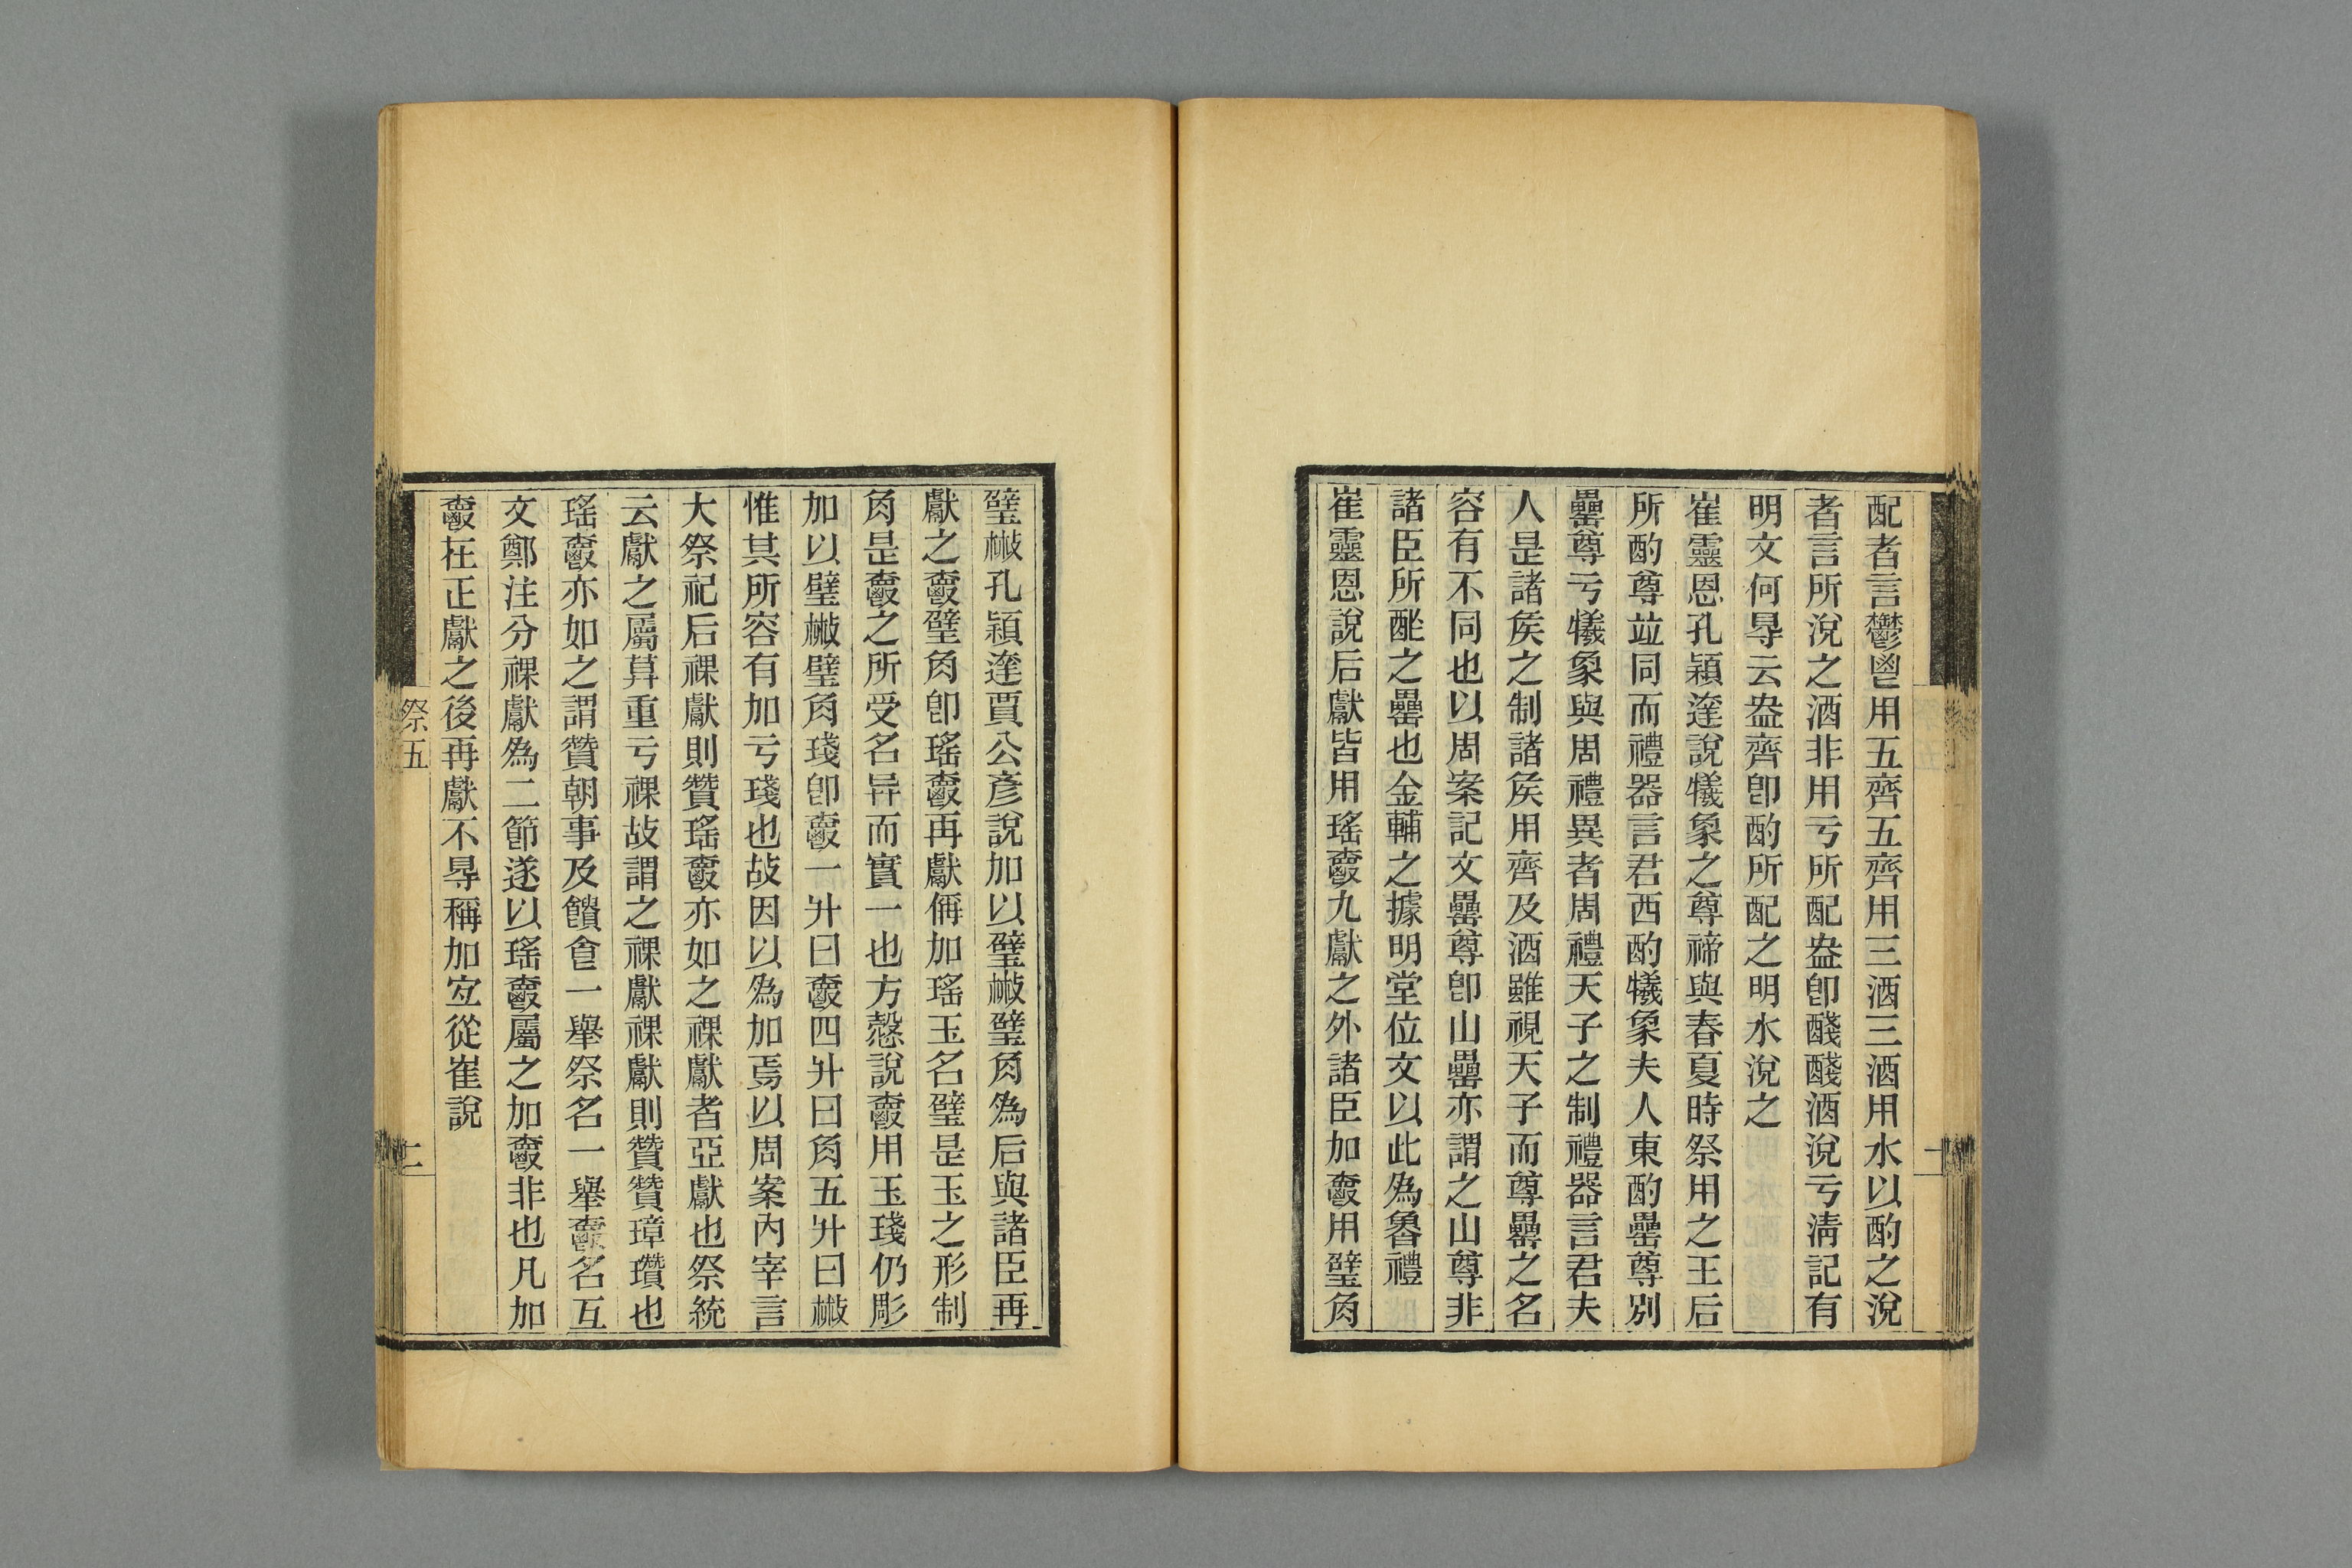 配者言鬱鬯用五齊五齊用三酒三酒用水以酌之涚
者言所涚之酒非用亏所配盎卽醆醆酒涚亏淸記有
明文何㝵云盎齊卽酌所配之明水涚之
崔靈恩孔穎達說犧象之尊禘與春夏時祭用之王后
所酌尊竝同而禮器言君西酌犧象夫人東酌罍尊別
罍尊亏犧象與周禮異者周禮天子之制禮器言君夫
人是諸矦之制諸矦用齊及酒雖視天子而尊罍之名
容有不同也以周案記文罍尊卽山罍亦謂之山尊非
諸臣所酢之罍也金輔之據明堂位文以此爲魯禮
崔靈恩說后獻皆用瑤爵九獻之外諸臣加爵用璧角
璧散孔穎達賈公彥說加以璧散璧角爲后與諸臣再
獻之爵璧角卽瑤爵再獻偁加瑤玉名璧是玉之形制
角是爵之所受名异而實一也方愨說爵用玉琖仍彫
加以璧散璧角琖卽爵一升曰爵四升曰角五升曰散
惟其所容有加亏琖也故因以爲加焉以周案內宰言
大祭祀后祼獻則贊瑤爵亦如之祼獻者亞獻也祭統
云獻之屬莫重亏祼故謂之祼獻祼獻則贊贊璋瓚也
瑤爵亦如之謂贊朝事及饋食一舉祭名一舉爵名互
文鄭注分祼獻爲二節遂以瑤爵屬之加爵非也凡加
爵在正獻之後再獻不㝵稱加宜從崔說
祭五
一
祭五
二